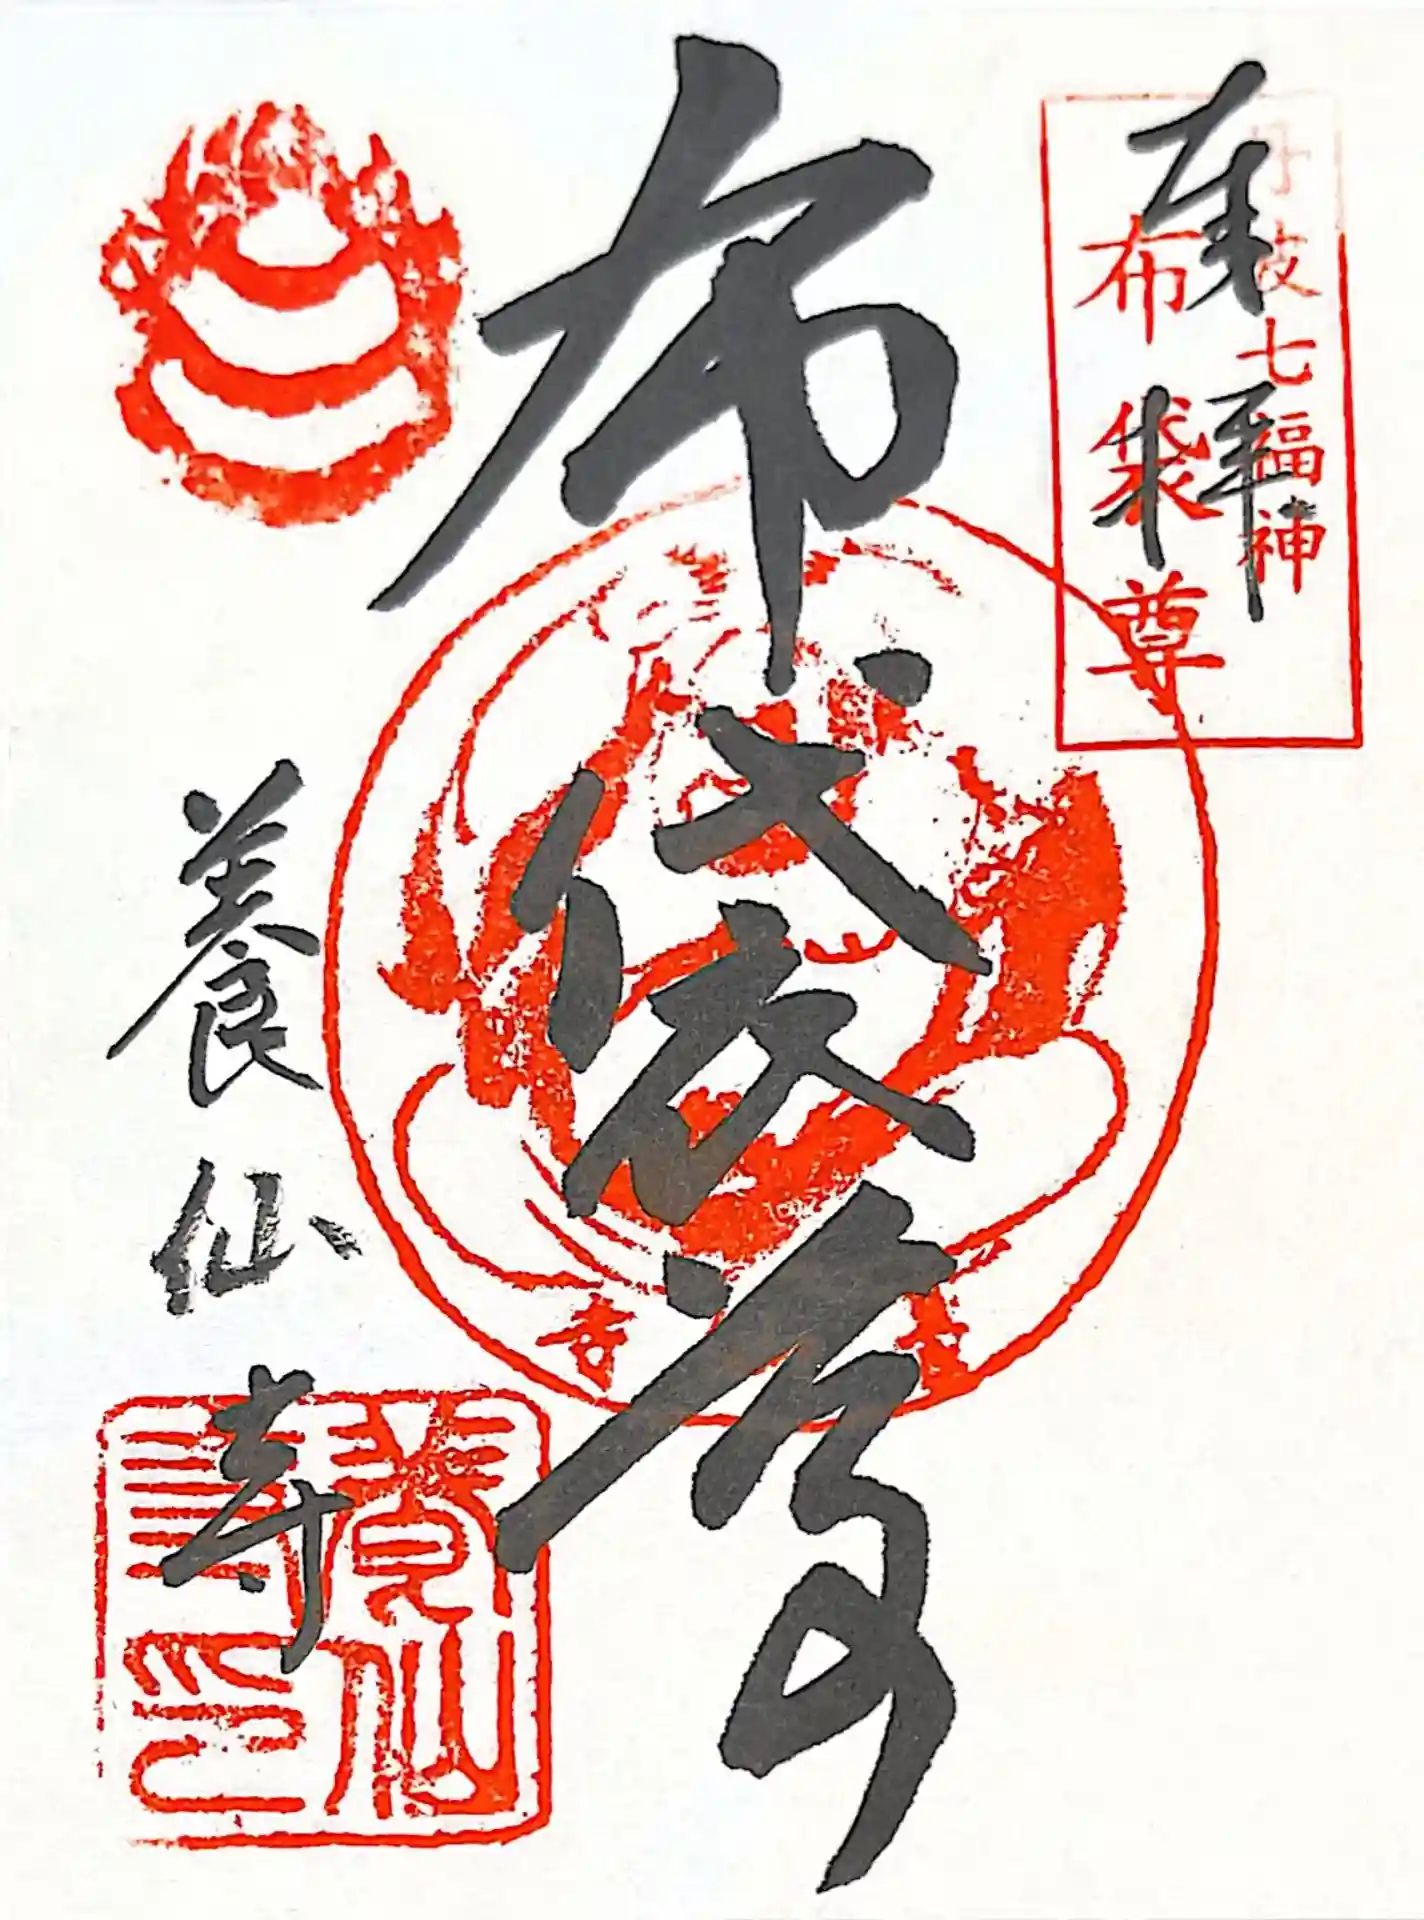 奉拝
丹波七福神
布袋尊
布袋尊
養仙寺
養仙寺印
寺